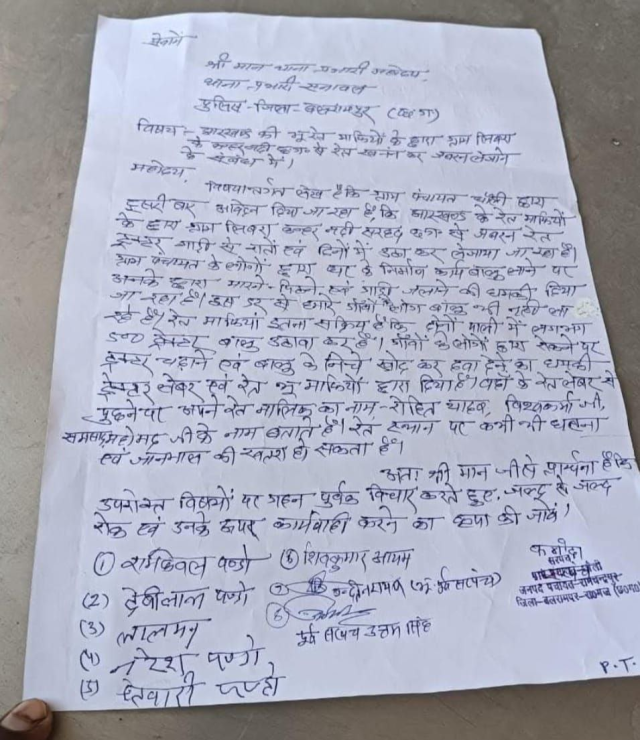 सेवामें
श्री मान थाना प्रभारी महोदय.
थाना प्रभारी सनावल
पुलिस- जिला- बलरामपुर (छ ग)
विषय - झारखण्ड की भू रेत माफियों के द्वारा ग्राम लिबरा
के कन्हर नदी छ०ग० से रेत खनन कर जबरन लेजाने
के संबंध में।
महोदय,
विषयान्तर्गत लेख है कि ग्राम पंचायत द्वारा
दुसरी बार आवेदन दिया जा रहा है कि झारखण्ड के रेत माफियों
के द्वारा ग्राम लिबरा कन्हर नदी सरहद छ०ग० से जबरन रेत
ट्रेक्टर गाड़ी से रातों एवं दिनों में उठा कर लेजाया जा रहा है।
ग्राम पंचायत के लोगों द्वारा घर के निर्माण कार्य बालू लाने पर
उनके द्वारा मारने - पिटने एवं गाड़ी जलाने की धमकी दिया
जा रहा है। इस डर से हमारे गाँवों लोग बालू भी नहीं ला
रहे है। रेत माफियां इतना सक्रिय है कि दोनों पालों में लगभग
ट्रेक्टर बालू उठावा कर है। गाँवों के लोगों द्वारा रोकने पर
ट्रेक्टर चढ़ाने एवं बालू के निचे खोद कर दबा देने का धमकी
ट्रेक्टर लेबर एवं रेत भू माफियों द्वारा दिया है। वहाँ के रेत लेबर से
पुछने पर अपने रेत मालिक का नाम- रोहित यादव, विश्वकर्मा जी,
महोमद जी के नाम बताते है। रेत स्थान पर कभी भी घटना
एवं जानमाल की खतरा हो सकता है।
अतः श्री मान जी से प्रार्थना है कि
उपरोक्त विषयों पर गहन पुर्वक विचार करते हुए, जल्द से जल्द
रोक एवं उनके ऊपर कार्यवाही करने का कृपा की जावें।
(1) रामकेवल पण्डो (6) शिवकुमार आयम
(2) देवीलाल पण्डो
(3) लालमन
(4) नरेश पण्डो
(5) पण्डो
पूर्व सरपंच उत्तम सिंह
सरपंच
जनपद पंचायत-रामचन्द्रपुर
जिला-बलरामपुर-
P.T.